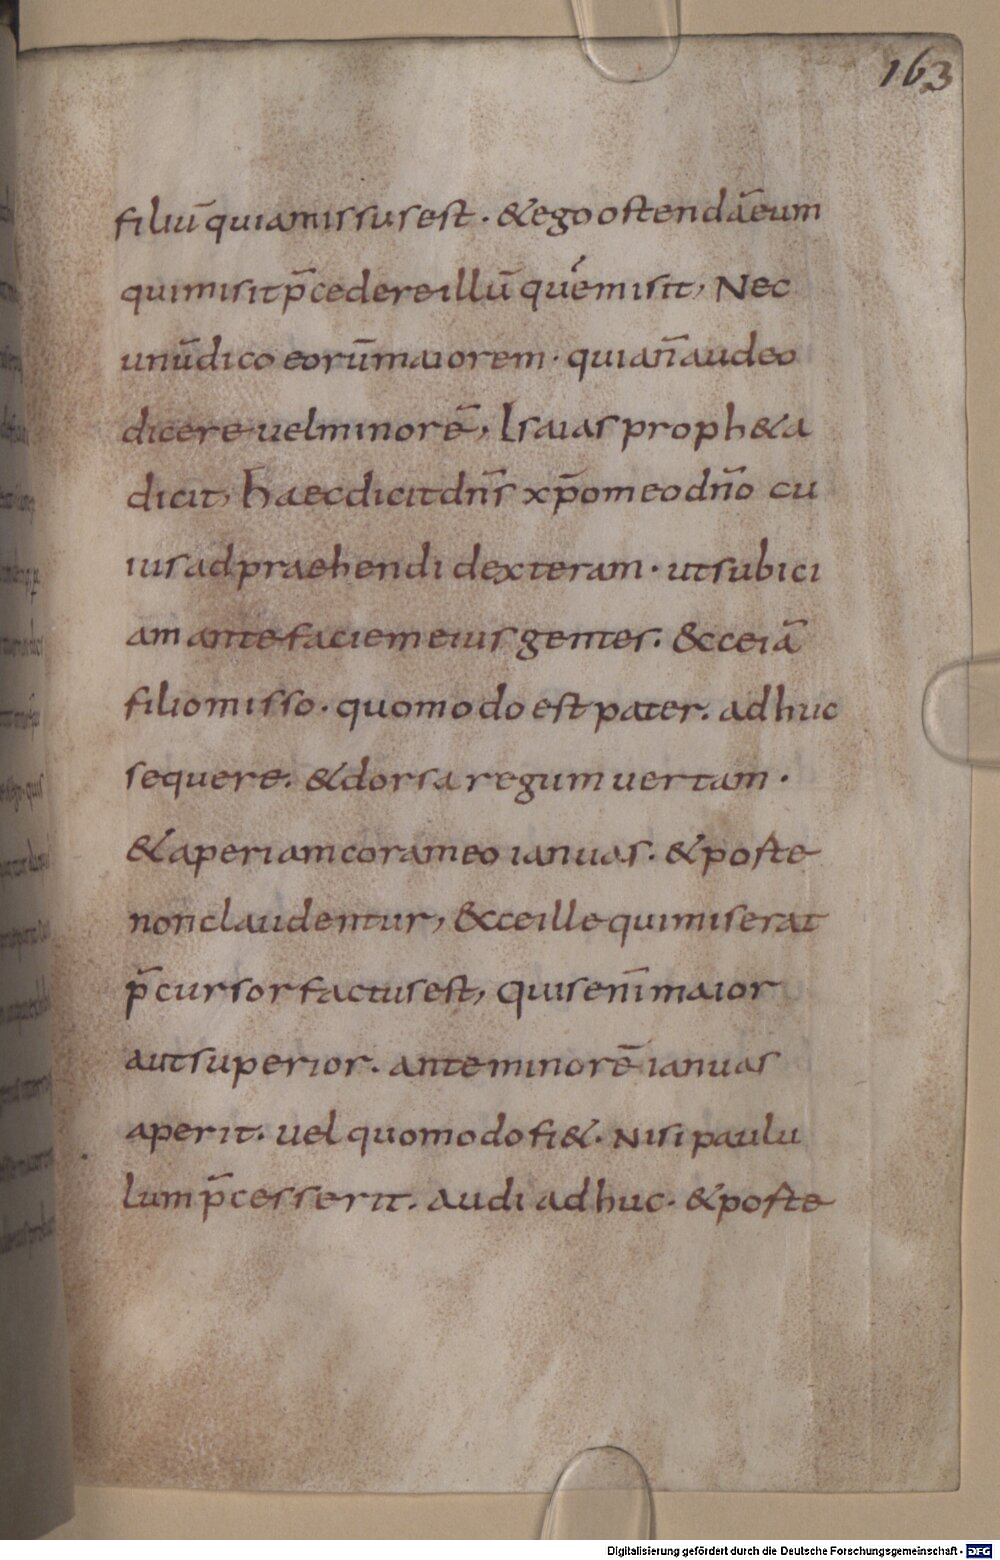 163
filiū quia missus est · & ego ostendā eum
qui misit p̄cedere illū quem misit, Nec
unū dico eorū maiorem · quia n̄ audeo
dicere uel minorē, Isaias proph&a
dicit, haec dicit dn̄s xp̄o meo dn̄o cu
ius adpraehendi dexteram · ut subici
am ante faciem eius gentes. &cce iā
filio misso · quomodo est pater. adhuc
sequere. & dorsa regum uertam ·
& aperiam coram eo ianuas. & poste
non claudentur, &cce ille qui miserat
p̄cursor factus est, quis eni̅ maior
aut superior. ante minorē ianuas
aperit. uel quomodo fi&. Nisi paulu
lum p̄cesserit. audi adhuc. & poste
Digitalisierung gefördert durch die Deutsche Forschungsgemeinschaft - DFG